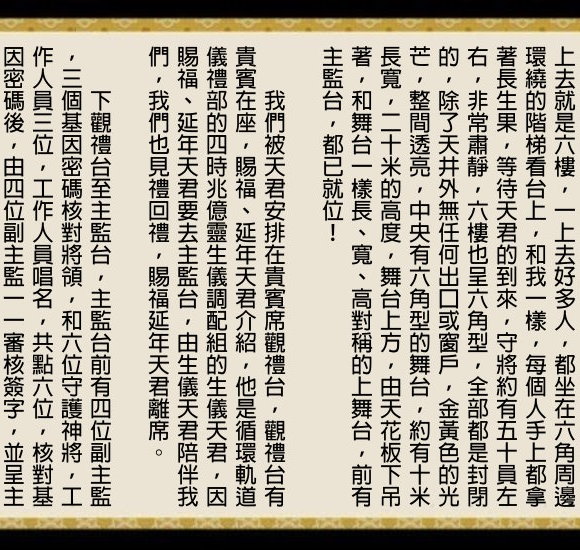 上去就是六樓，一上去好多人，都坐在六角周邊
環繞的階梯看台上，和我一樣，每個人手上都拿
著長生果，等待天君的到來，守將約有五十員左
右，非常肅靜，六樓也呈六角型，全部都是封閉
的，除了天井外無任何出口或窗戶，金黃色的光
芒，整間透亮，中央有六角型的舞台，約有十米
長寬，二十米的高度，舞台上方，由天花板下吊
著，和舞台一樣長、寬、高對稱的上舞台，前有
主監台，都已就位！
我們被天君安排在貴賓席觀禮台，觀禮台有
貴賓在座，賜福、延年天君介紹，他是循環軌道
儀禮部的四時兆億靈生儀調配組的生儀天君，因
賜福、延年天君要去主監台，由生儀天君陪伴我
們，我們也見禮回禮，賜福延年天君離席。
下觀禮台至主監台，主監台前有四位副主監
，三個基因密碼核對將領，和六位守護神將，工
作人員三位，工作人員唱名，共點六位，核對基
因密碼後，由四位副主監一一審核簽字，並呈主